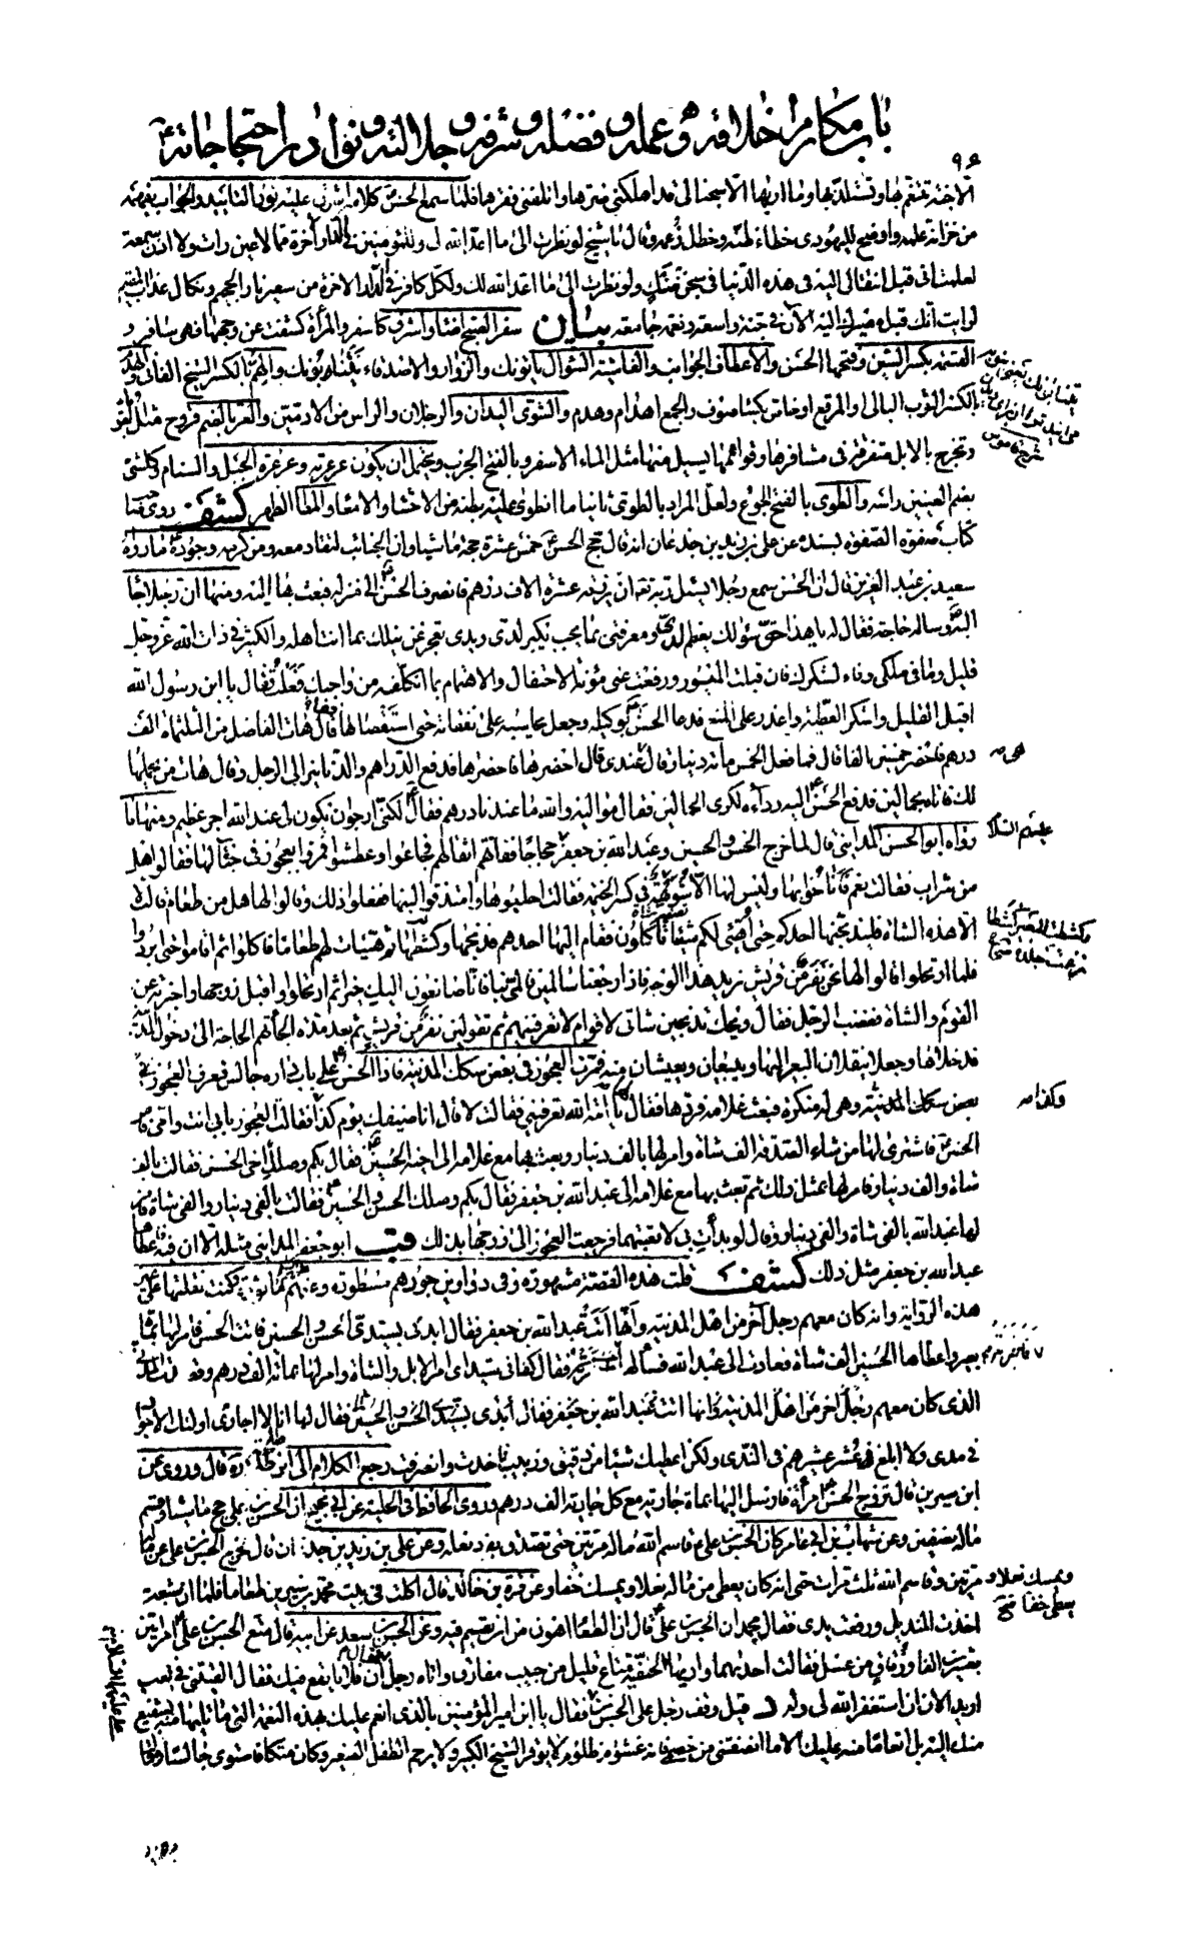 باب مكارم اخلاقه و عمله و فضله و شرفه و جلالته و نوادر احتجاجاته ع
٩٤
الا جنة تتنعم بها وتستلذ بها وما اراها الا سجنا لي قد اهلكني ضرها واتلفني فقرها فلما سمع الحسن كلامه اشرق عليه نور التاييد والجواب بفهمه
من خزانة علمه واوضح لليهودي خطاء ظنه وخطل زعمه وقال يا شيخ لو نظرت الى ما اعد الله لي وللمؤمنين في الدار الاخرة مما لا عين رات ولا اذن سمعت
لعلمت اني قبل انتقالي اليه في هذه الدنيا في سجن ضنك ولو نظرت الى ما اعد الله لك ولكل كافر في الدار الاخرة من سعير نار الجحيم ونكال عذاب المقيم
لرايت انك قبل مصيرك اليه الآن في جنة واسعة ونعمة جامعة بيان سفر الصبح اضاء واشرق كاسفر والمرأة كشفت عن وجهها فهي سافر و
الشتمة بكسر الشين وفتحها الحسن والاعطاف الجوانب والغاشية السؤال ياتونك والزوار والاصدقاء ينتابونك والهم بالكسر الشيخ الفاني والهدم
بالكسر الثوب البالي او المرقع او خاص بكساء صوف والجمع اهدام وهدم والشوى اليدان والرجلان والراس من الادميين والعر بالضم قروح مثل القو
وتخرج بالابل متفرقة في مشافرها وقوائمها يسيل منها مثل الماء الاصفر وبالفتح الجرب ويحتمل ان يكون عرعرته وعرعرة الجبل والسنام وكل شئ
بضم العينين راسه والطوى بالفتح الجوع ولعل المراد بالطوى ثانيا ما انطوى عليه بطنه من الاحشاء والامعاء والمطا الظهر كشف روى في
كتاب صفوة الصفوة بسنده عن علي بن زيد بن جدعان انه قال حج الحسن ع خمس عشرة حجة ماشيا وان الجنائب لتقاد معه ومن كرمه وجوده ع ما رواه
سعيد بن عبد العزيز قال ان الحسن سمع رجلا يسئل ربه تعالى ان يرزقه عشرة الاف درهم فانصرف الحسن الى منزله فبعث بها اليه ومنها ان رجلا جاء
اليه وساله حاجة فقال له يا هذا حق سؤالك يعظم لدي ومعرفتي بما يجب يكبر لدي ويدي تعجز عن نيلك بما انت اهله والكثير في ذات الله عز وجل
قليل وما في ملكي وفاء لشكرك فان قبلت الميسور ورفعت عني مؤنة الاحتفال والاهتمام بما اتكلفه من واجبك فعلت فقال يا ابن رسول الله
اقبل القليل واشكر العطية واعذر على المنع فدعا الحسن ع بوكيله وجعل يحاسبه على نفقاته حتى استقصاها قال هات الفاضل من الثلثمائة الف
درهم فاحضر خمسين الفا قال فما فعل الخمس مائة دينار قال عندي قال احضرها فاحضرها فدفع الدراهم والدنانير الى الرجل وقال هات من يحملها
لك فاتاه بحمالين فدفع الحسن اليه رداءه لكرى الحمالين فقال مواليه والله ما عندنا درهم فقال لكني ارجو ان يكون لي عند الله اجر عظيم ومنها ما
رواه ابو الحسن المدايني قال لما خرج الحسن والحسين وعبد الله بن جعفر حجاجا ففاتهم اثقالهم فجاعوا وعطشوا فمروا بعجوز في خباء لها فقالوا هل
عليهم السلا
من شراب فقالت نعم فاناخوا بها وليس لها الا شويهة في كسر الخيمة فقالت احلبوها وامتذقوا لبنها ففعلوا ذلك وقالوا لها هل من طعام قالت لا
الا هذه الشاة فليذبحنها احدكم حتى اهيئ لكم شيئا تاكلون فقام اليها احدهم فذبحها وكشطها ثم هيئات لهم طعاما فاكلوا ثم اقاموا حتى ابردوا
فلما ارتحلوا قالوا لها نحن نفر من قريش نريد هذا الوجه فاذا رجعنا سالمين فالمي بنا فانا صانعون اليك خيرا ثم ارتحلوا واقبل زوجها واخبرته عن
القوم والشاة فغضب الرجل فقال ويحك تذبحين شاتي لاقوام لا تعرفينهم ثم تقولين نفر من قريش ثم بعد مدة الجأتهم الحاجة الى دخول المدينة
فدخلاها وجعلا ينقلان البعر اليها ويبيعان ويعيشان منه فمرت العجوز في بعض سكك المدينة فاذا الحسن ع على باب داره جالس فعرف العجوز في
بعض سكك المدينة وهي له منكرة فبعث غلامه فردها فقال يا امة الله تعرفيني فقالت لا قال انا ضيفك يوم كذا فقالت العجوز بابي انت وامي فامر
وكذا
الحسن ع فاشترى لها من شاء الصدقة الف شاة وامر لها بالف دينار وبعث بها مع غلامه الى اخيه الحسين فقال بكم وصلك اخي الحسن فقالت بالف
شاة والف دينار فامر لها بمثل ذلك ثم بعث بها مع غلامه الى عبد الله بن جعفر فقال بكم وصلك الحسن والحسين فقالت بالفي دينار والفي شاة فامر
لها عبد الله بالفي شاة والفي دينار وقال لو بدأت بي لاتعبتهما فرجعت العجوز الى زوجها بذلك قب ابو جعفر المدايني مثله الا ان فيه عطاء
عبد الله بن جعفر مثل ذلك كشف قلت هذه القصة مشهورة وفي دواوين جودهم مسطورة وعنهم مأثورة وكنت نقلتها على
هذه الرواية وانه كان معهم رجل آخر من اهل المدينة وانها اتت عبد الله بن جعفر فقال ابدئي بسيدي الحسن والحسين فاتت الحسن فامر لها بمائة
بعير واعطاها الحسين الف شاة فعادت الى عبد الله فسألها فقال كفاني سيداي امر الابل والشاة وامر لها بمائة الف درهم وقصدت المدني
الذي كان معهم فقال لها انا لا اجاري اولئك الاجواد
في مدى ولا ابلغ عشر عشيرهم في الندى ولكن اعطيك شيئا من دقيق وزبيب فاخذت وانصرفت رجع الكلام الى ابن طلحة ره قال وروى عن
ابن سيرين قال تزوج الحسن امرأة فارسل اليها بمائة جارية مع كل جارية الف درهم وروى الحافظ في الحلية عن ابي نجيح ان الحسن بن علي حج ماشيا وقسم
ماله نصفين وعن شهاب بن ابي عامر ان الحسن بن علي ع قاسم الله ماله مرتين حتى تصدق بفرد نعله وعن علي بن زيد بن جدعان قال خرج الحسن بن علي من ماله
مرتين وقاسم الله ثلث مرات حتى انه كان يعطي من ماله نعلا ويمسك خفا وعن قرة بن خالد قال اكلت في بيت محمد بن سيرين طعاما فلما ان شبعت
ويمسك نعلا و
يعطي خفا
اخذت المنديل ورفعت يدي فقال محمد ان الحسن بن علي ع قال ان الطعام اهون من ان يقسم فيه وعن الحسن بن سعد عن ابيه قال متع الحسن بن علي ع امرأتين
بعشرين الفا وزقاق من عسل فقالت احديهما واراها الحنفية متاع قليل من حبيب مفارق واتاه رجل فقال ان فلانا يقع فيك فقال القيتني في تعب
اريد الان ان استغفر الله لي وله قيل وقف رجل على الحسن بن علي ع فقال يا ابن امير المؤمنين بالذي انعم عليك بهذه النعمة التي ما تليها منه بشفيع
منك اليه بل انعاما منه عليك الا ما انصفتني من خصمي فانه غشوم ظلوم لا يوقر الشيخ الكبير ولا يرحم الطفل الصغير وكان متكئا فاستوى جالسا وقال